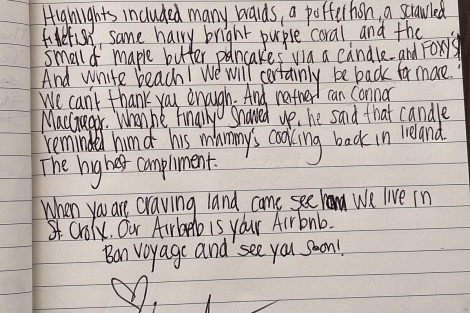 Highlights included many braids, a pufferfish, a scrawled
filefish, some hairy bright purple coral and the
smell of maple butter pancakes via a candle. and Foxy's
And white beach! We will certainly be back for more.
We can't thank you enough. And neither can Connor
MacGregor. When he finally showed up, he said that candle
reminded him of his mammy's cooking back in Ireland.
The highest compliment.
When you are craving land come see how We live in
St. Croix. Our Airbnb is your Airbnb.
Bon Voyage and see you soon!